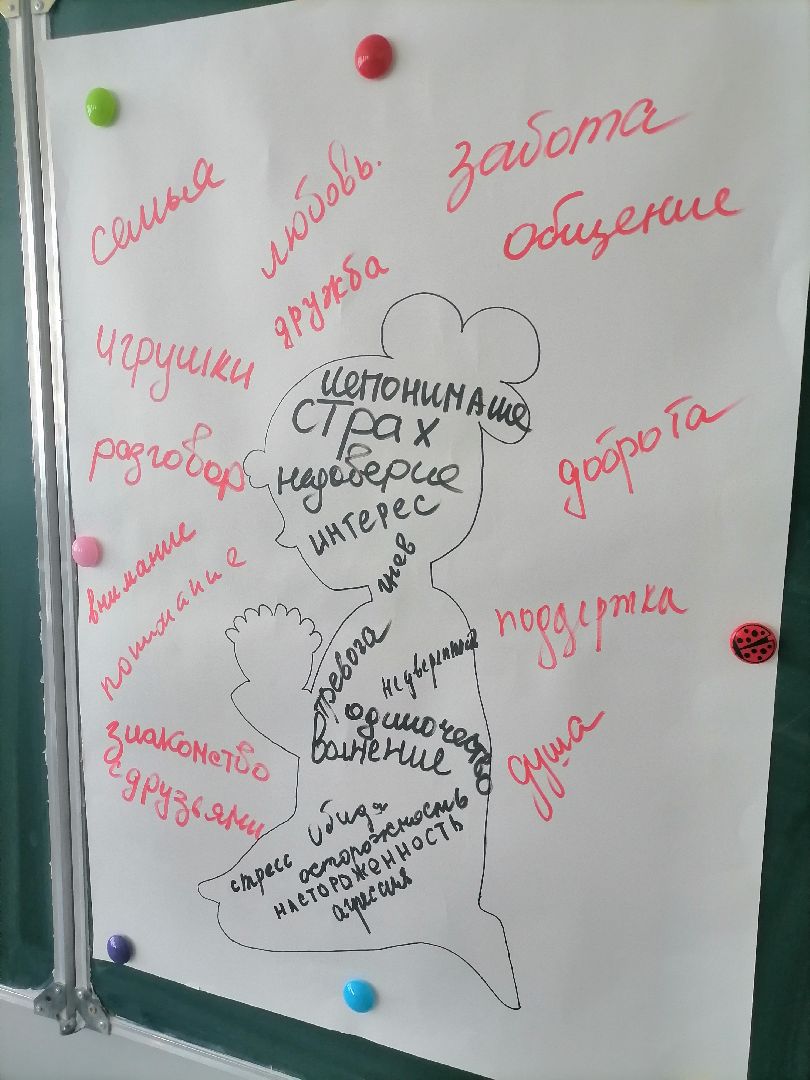 семья
любовь.
забота
общение
дружба
игрушки
разговор
внимание
понимание
знакомство
с друзьями
непонимание
страх
недоверие
интерес
гнев
тревога
неуверенность
одиночество
волнение
обида
стресс
осторожность
настороженность
агрессия
доброта
поддержка
душа